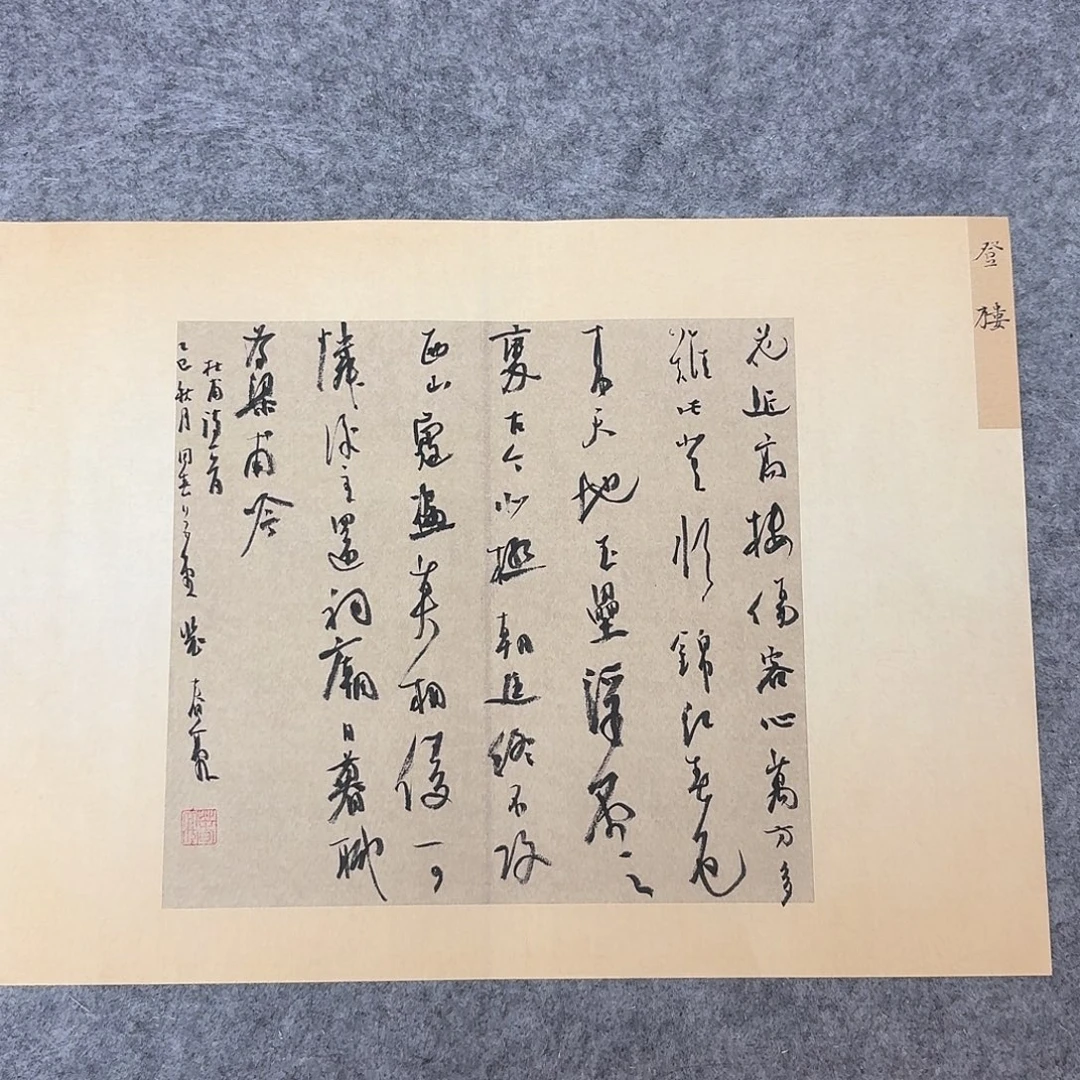 登樓
花近高樓傷客心萬方多
難此登臨錦江春色
來天地玉壘浮雲
變古今北極朝廷終不改
西山寇盜莫相侵可
憐後主還祠廟日暮聊
為梁甫吟
杜甫詩一首
乙巳秋月